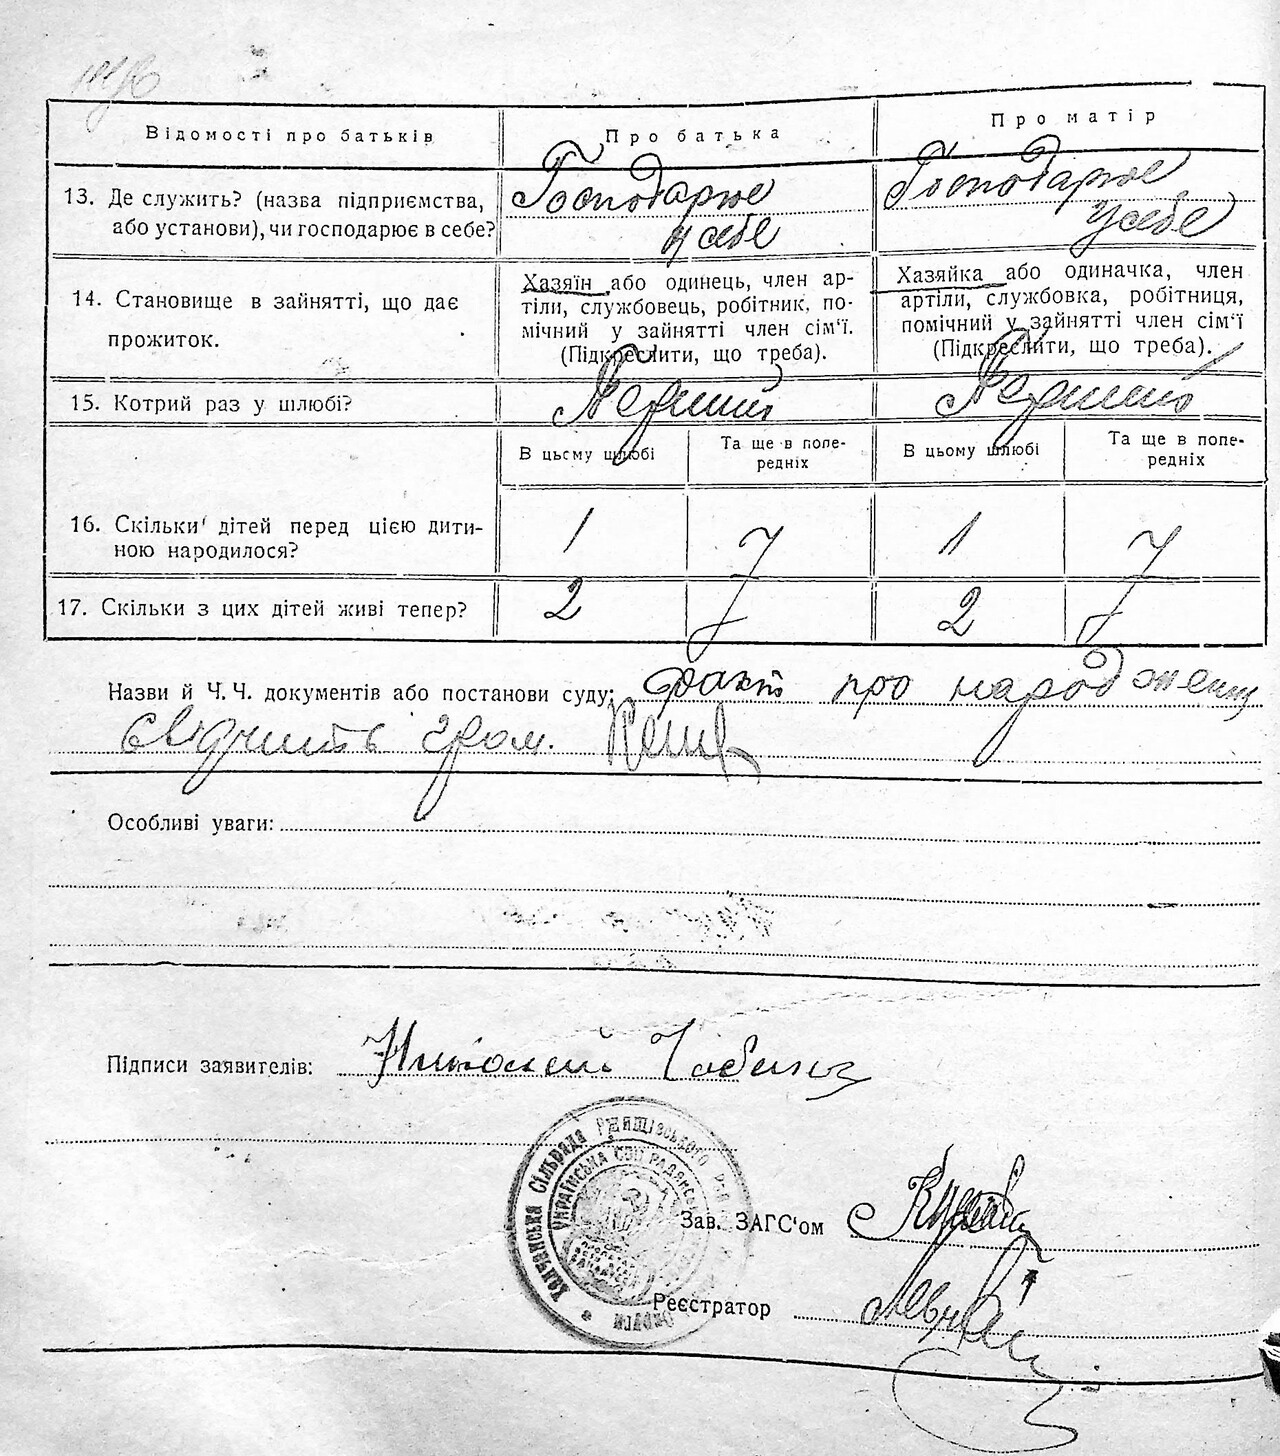 Відомості про батьків
Про батька
Про матір
13. Де служить? (назва підприємства, або установи), чи господарює в себе?
Господарює
у себе
Господарює
у себе
14. Становище в зайнятті, що дає
прожиток.
Хазяїн або одинець, член ар-
тіли, службовець, робітник, по-
мічний у зайнятті член сім'ї.
(Підкреслити, що треба).
Хазяйка або одиначка, член
артіли, службовка, робітниця,
помічний у зайнятті член сім'ї
(Підкреслити, що треба).
15. Котрий раз у шлюбі?
Перший
Перший
В цьому шлюбі
Та ще в попе-
редніх
В цьому шлюбі
Та ще в попе-
редніх
16. Скільки дітей перед цією дити-
ною народилося?
1
1
17. Скільки з цих дітей живі тепер?
2
2
Назви й Ч. Ч. документів або постанови суду: факт про народження
свідчить гром.
Особливі уваги:
Підписи заявителів: Николай
Ржищівського
сільрада
Українська Соц. Радянськ
Зав. ЗАГС'ом
Реєстратор